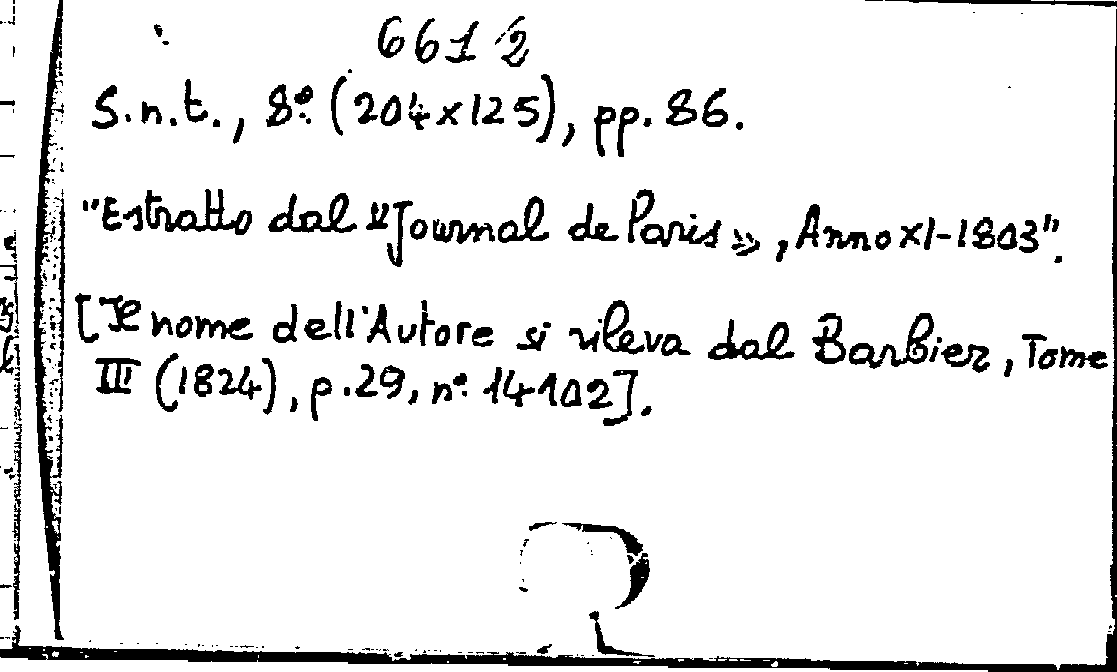 6612
S.n.t., 8º (204x125), pp. 86.
"Estratto dal «Journal de Paris», Anno XI-1803".
[Il nome dell'Autore si rileva dal Barbier, Tome
III (1824), p.29, nº 14102].